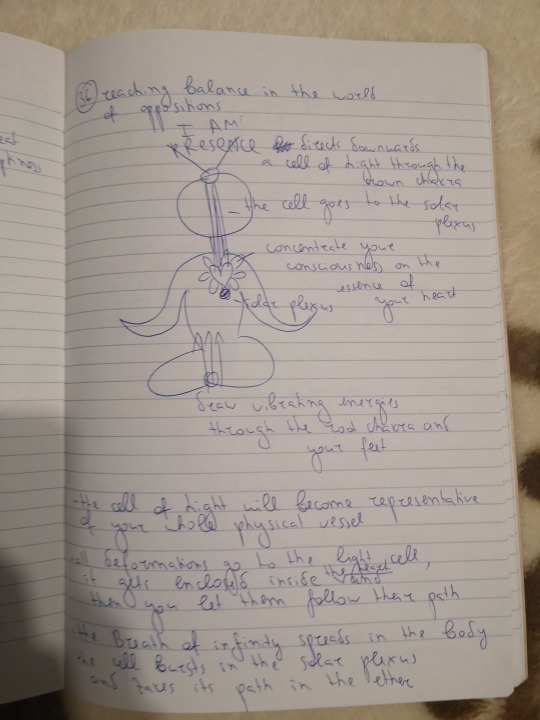 eat
ghness
36 reaching balance in the world
of oppositions
I AM
PRESENCE directs downwards
a cell of Light through the
crown chakra
the cell goes to the solar
plexus
concentrate your
consciousness on the
essence of
your heart
solar plexus
draw vibrating energies
through the root chakra and
your feet
- the cell of Light will become representative
of your whole physical vessel
all deformations go to the light cell,
it gets enclosed inside the heart and
then you let them follow their path
- the Breath of infinity spreads in the body
the cell bursts in the solar plexus
and takes its path in the ether